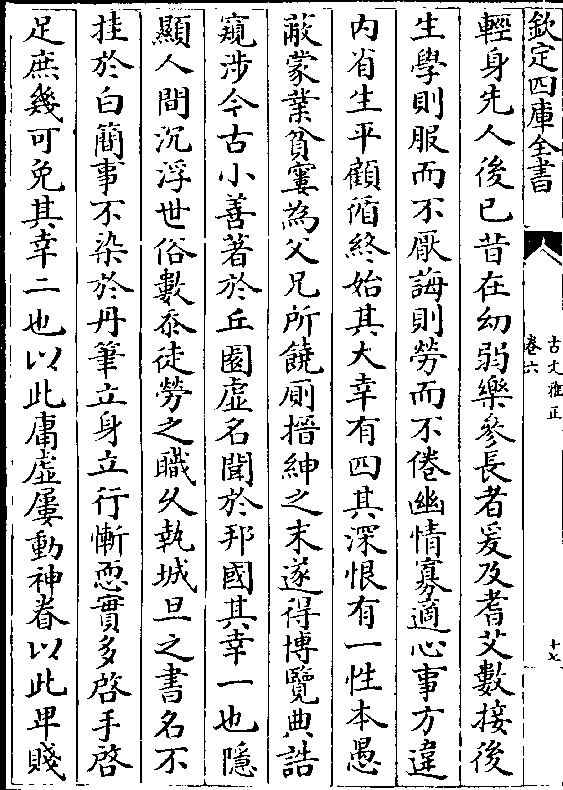 欽定四庫全書
古文雅正
卷六
十七
輕身先人後已昔在幼弱樂參長者爰及耆艾數接後
生學則服而不厭誨則勞而不倦幽情寡適心事方違
内省生平顧循終始其大幸有四其深恨有一性本愚
蔽蒙業貧窶為父兄所饒厠搢紳之末遂得博覽典誥
窺涉今古小善著於丘園虚名聞於邦國其幸一也隱
顯人間沉浮世俗數忝徒勞之職乆執城旦之書名不
挂於白簡事不染於丹筆立身立行慚恧實多啓手啓
足庶幾可免其幸二也以此庸虚屢動神眷以此卑賤